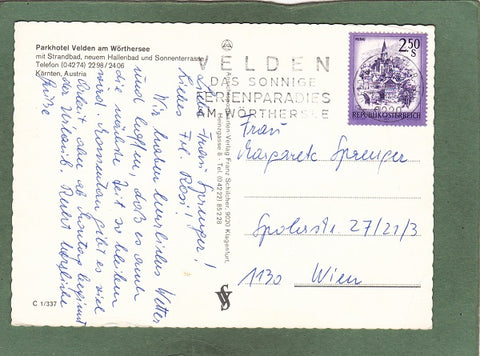 Parkhotel Velden am Wörthersee
mit Strandbad, neuem Hallenbad und Sonnenterrasse
Telefon (04274) 2298 / 2406
Kärnten, Austria
VELDEN
DAS SONNIGE
FERIENPARADIES
AM WÖRTHERSEE
2.50
S
REPUBLIK ÖSTERREICH
Liebe Frau Sprenger!
Liebes Frl. Rosi!
Wir haben herrliches Wetter
und hoffen, daß es auch
die nächste Zeit so bleiben
wird. Momentan gibt es viel
Arbeit, aber ab Montag beginnt
der Urlaub. Recht herzliche
Grüße
Franz Schilcher, 9020 Klagenfurt,
Herrengasse 8 - Tel. (04222) 85 2 28
Frau
Margarete Sprenger
27/21/3
1130 Wien
C 1/337